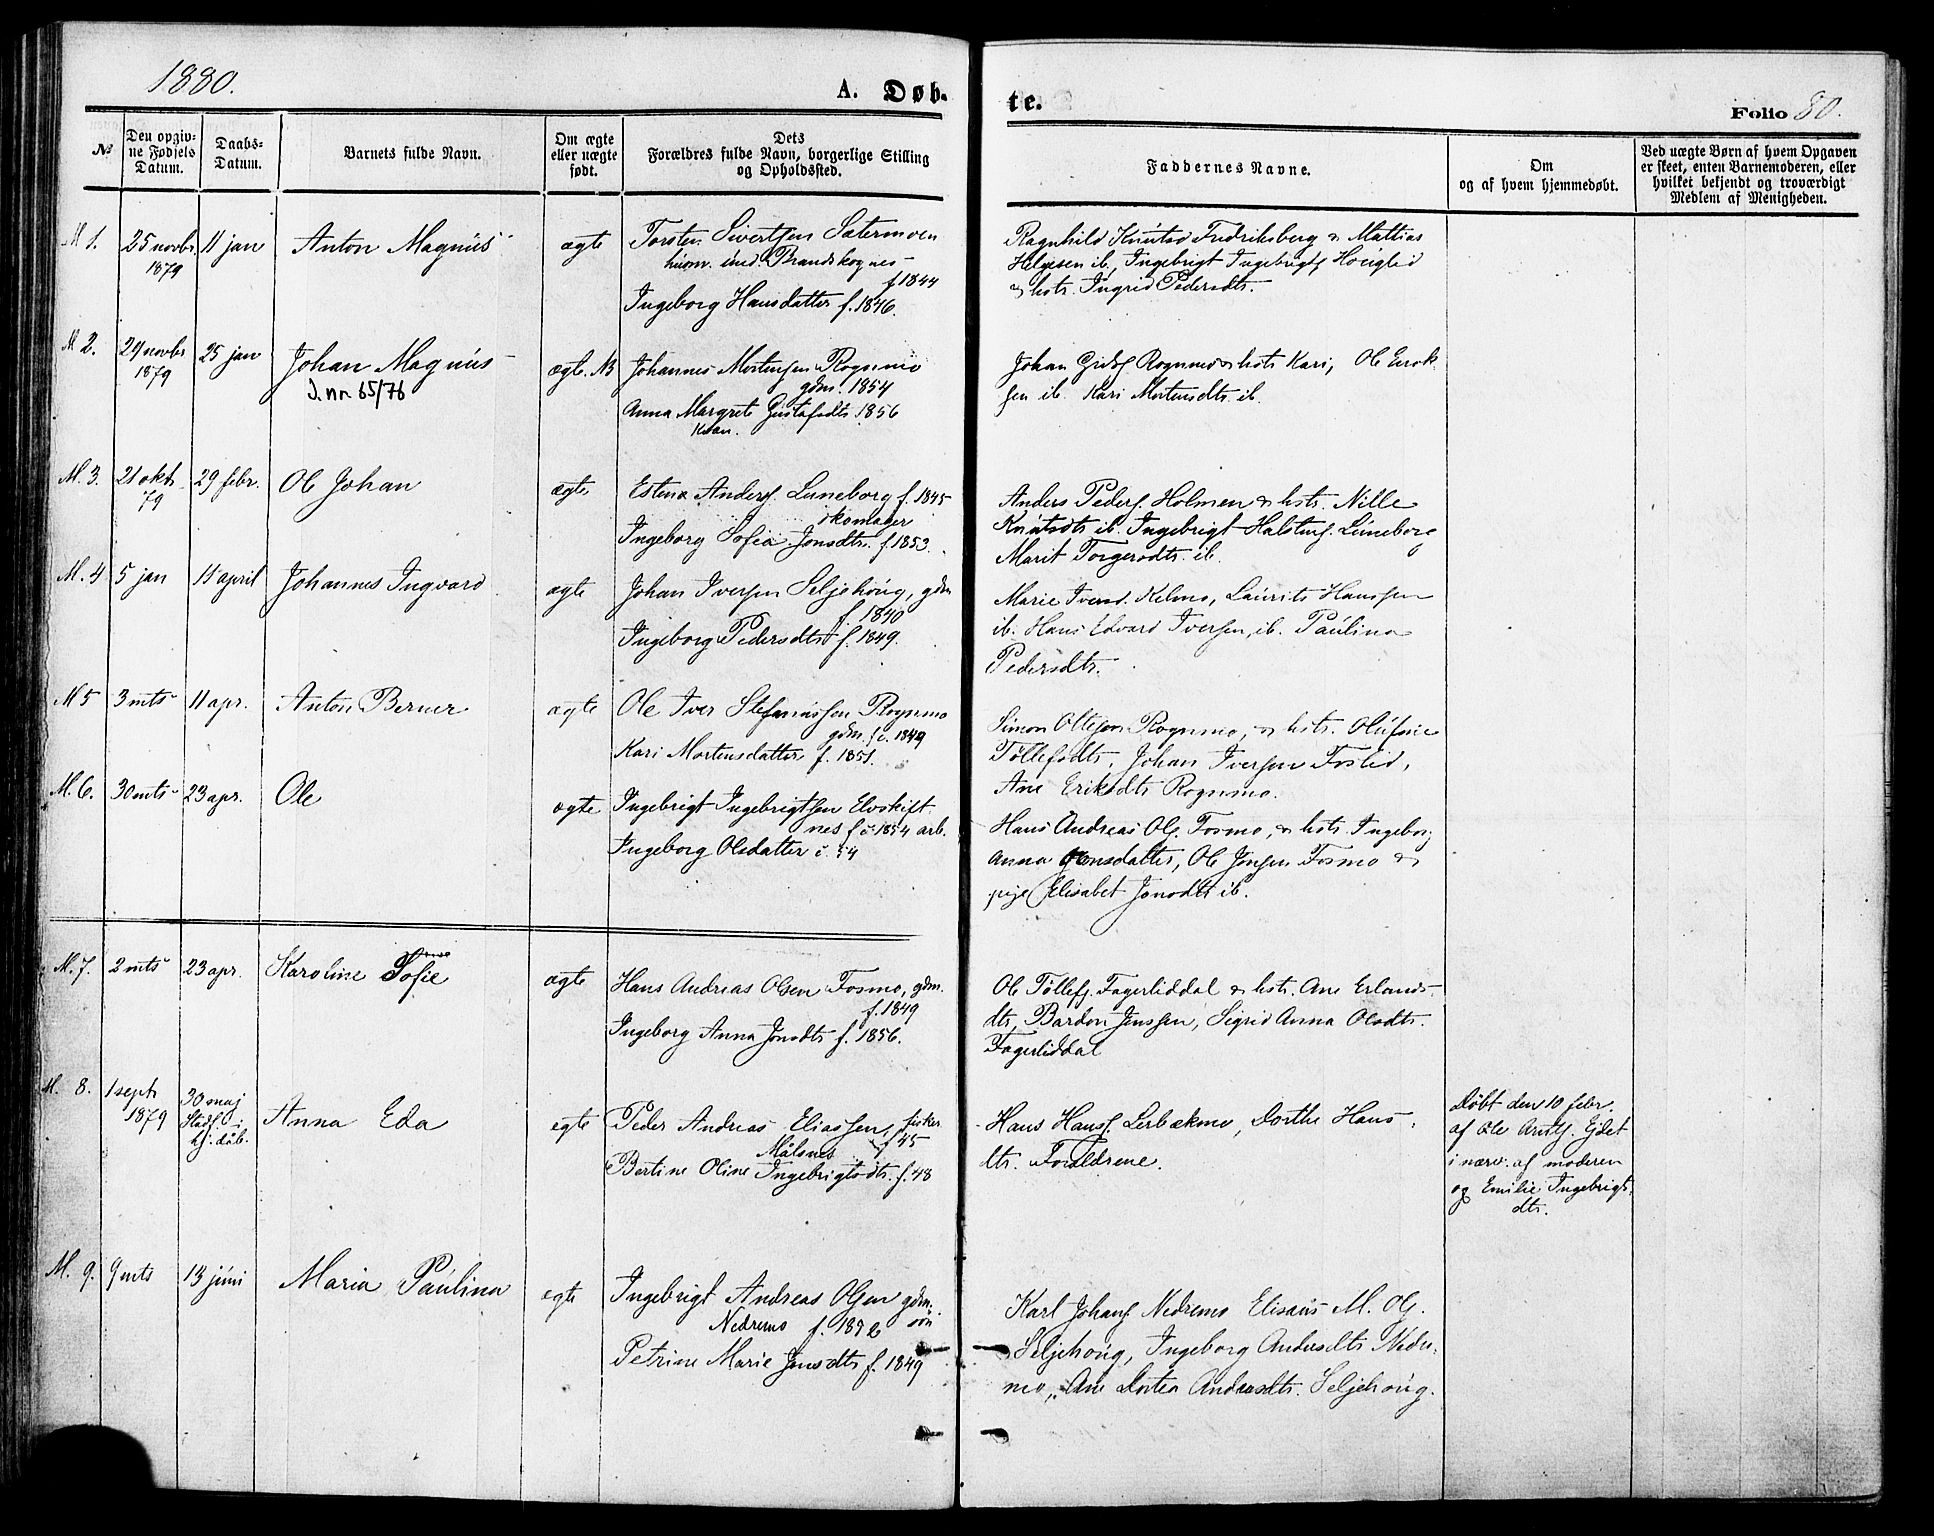 1880.
A. Døb-
te.
Folio 80.
№
Den opgiv-
ne Fødsels
Datum.
Daabs-
Datum.
Barnets fulde Navn.
Om ægte
eller uægte
født.
Dets
Forældres fulde Navn, borgerlige Stilling
og Opholdssted.
Faddernes Navne.
Om
og af hvem hjemmedøbt.
Ved uægte Børn af hvem Opgaven
er skeet, enten Barnemoderen, eller
hvilket bekjendt og troværdigt
Medlem af Menigheden.
M 1.
25 novbr
1879
11 jan
Anton Magnus
ægte
Torsten Sivertsen Sætermoen
husm. Brandskognes
f 1844
Ingeborg Hansdatter f. 1846.
Ragnhild Knutsd Fredriksberg & Mattias
Helgesen ib, Ingebrigt Ingebrigts Houglid
& hstr. Ingrid Pedersdtr.
M 2.
29 novbr
1879
25 jan
Johan Magnus
J. nr. 65/76
ægte. NB
Johannes Mortensen Rognmo
gdm. 1854
Anna Margrete Gustafsdtr 1856
Kvæn.
Johan Rognmo & hstr Kari, Ole Enok-
sen ib. Kari Mortensdtr. ib.
M. 3.
21 okt
79
29 febr.
Ole Johan
ægte
Anders. Luneborg f. 1845
skomager
Ingeborg Sofia Jonsdtr. f. 1853.
Anders Peders. Holmen & hstr. Nille
Knutsdtr ib. Ingebrigt Halstens. Luneborg
Marit Torgersdtr. ib.
M. 4
5 jan
11 april
Johannes Ingvard
ægte
Johan Iversen Seljehoug, gdm
f. 1840
Ingeborg Pedersdtr f. 1849.
Marie Iversd. Kelmo, Laurits Hanssen
ib. Hans Edvard Iversen, ib. Paulina
Pedersdtr.
M 5
3 mts
11 apr.
Anton Berner
ægte
Ole Iver Stefanussen Rognmo
gdm. f. c. 1849
Kari Mortensdatter f. 1851.
Simon Olsen Rognmo, & hstr. Olufine
Tollefsdtr, Johan Iversen Foslid,
Ane Eriksdtr Rognmo.
M. 6.
30 mts
23 apr.
Ole
ægte
Ingebrigt Ingebrigtsen Elvskift-
nes f c 1854 arb.
Ingeborg Olsdatter c. 54
Hans Andreas Ols. Fosmo, & hstr. Ingeborg
Anna Jonsdatter, Ole Jonsen Fosmo &
pige Elisabet Jonsdtr ib.
M. 7.
2 mts
23 apr.
Karoline Sofie
ægte
Hans Andreas Olsen Fosmo, gdm.
f. 1849
Ingeborg Anna Jonsdtr f. 1856.
Ole Tollefs. Fagerliddal & hstr. Ane Erlands-
dtr, Bardon Jenssen, Sigrid Anna Olsdtr.
Fagerliddal
M. 8.
1 sept
1879
30 maj
Stadf. i
hj. dåb.
Anna Eda
egte
Peder Andreas Eliassen, fisker
Målsnes f 45
Bertine Oline Ingebrigtsdtr. f. 48
Hans Hans. Lerbækmo, Dorthe Hans-
dtr. Forældrene.
Døbt den 10 febr.
af Ole Ejdet
i nærv. af moderen
og Emilie Ingebrigts-
dtr.
M. 9.
9 mts
13 juni
Maria Paulina
egte
Ingebrigt Andreas Olsen gdm.
Nedremo f. søn
Petrine Marie Jensdtr f. 1849
Karl Johans Nedremo Elisæus M. Ols.
Seljehoug, Ingeborg Andersdtr Nedre-
mo, Ane Dortea Andersdtr. Seljehoug.